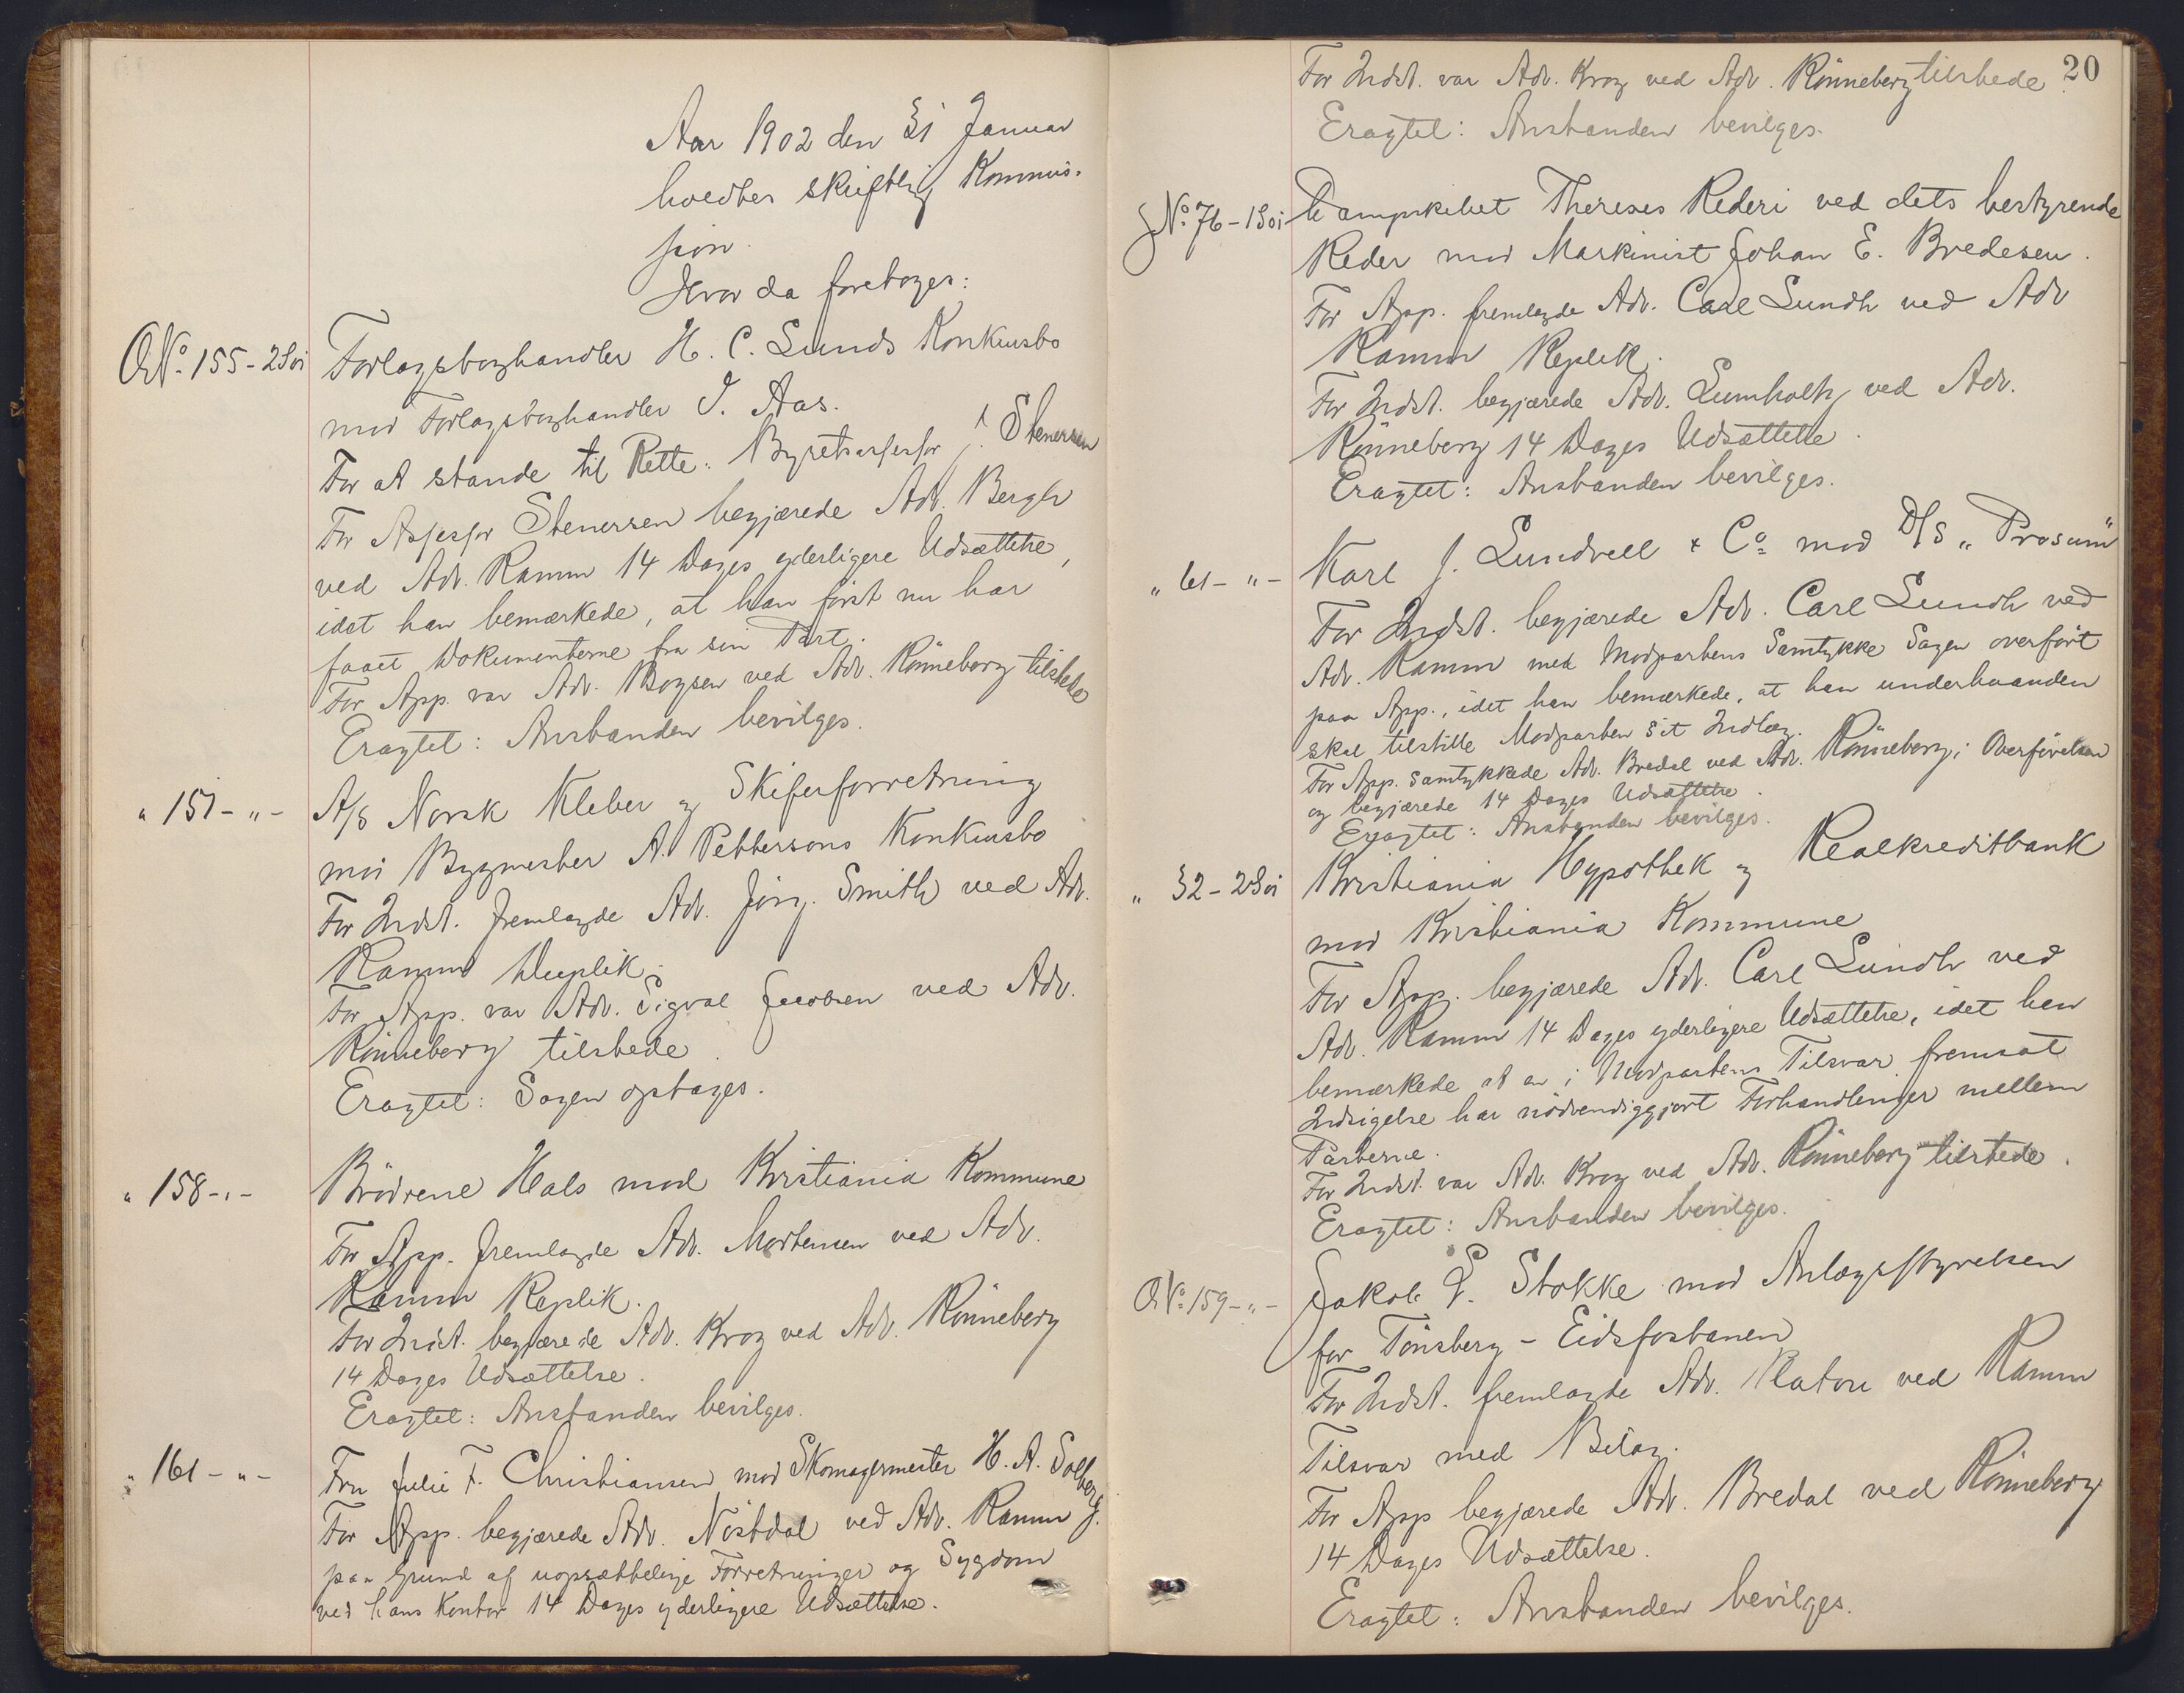 Aar 1902 den 31 Januar
holdtes skriftlig Kommis-
sion.
Hvor da foretoges:
O.No. 155-2S01
Forlagsboghandler H. C. Lunds Konkursbo
mod Forlagsboghandler I. Aas.
For at stande til Rette: Byretsassessor J. Stenersen
For Assessor Stenersen begjærede Adv. Bergh
ved Adv. Ramm 14 Dages yderligere Udsættelse,
idet han bemærkede, at han først nu har
faaet Dokumenterne fra sin Part.
For App. var Adv. Boysen ved Adv. Rönneberg tilstede
Eragtet: Anstanden bevilges.
" 151-"-
A/S Norsk Kleber og Skiferforretning
mod Bygmester A. Pettersons Konkursbo
For Indst. fremlagde Adv. Jörg. Smith ved Adv.
Ramm Duplik.
For App. var Adv. Sigval Jacobsen ved Adv.
Rönneberg tilstede.
Eragtet: Sagen optages.
" 158-"-
Brödrene Hals mod Kristiania Kommune
For App. fremlagde Adv. Mortensen ved Adv.
Ramm Replik.
For Indst. begjærede Adv. Krog ved Adv. Rönneberg
14 Dages Udsættelse.
Eragtet: Anstanden bevilges.
" 161-"-
Fru Julie F. Christiansen mod Skomagermester H. A. Solberg.
For App. begjærede Adv. Nöstdal ved Adv. Ramm
paa Grund af uopsættelige Forretninger og Sygdom
ved hans Kontor 14 Dages yderligere Udsættelse.
20
For Indst. var Adv. Krog ved Adv. Rönneberg tilstede
Eragtet: Anstanden bevilges.
No. 76-1S01
Dampskibet Thereses Rederi ved dets bestyrende
Reder mod Maskinist Johan E. Bredesen.
For App. fremlagde Adv. Carl Lundh ved Adv
Ramm Replik.
For Indst. begjærede Adv. Lumholtz ved Adv.
Rönneberg 14 Dages Udsættelse.
Eragtet: Anstanden bevilges.
" 61-"-
Karl J. Lundvall & Co. mod D/S "Prosum"
For Indst. begjærede Adv. Carl Lundh ved
Adv. Ramm med Modpartens Samtykke Sagen overført
paa App., idet han bemærkede, at han underhaanden
skal tilstille Modparten sit Indlæg.
For App. samtykkede Adv. Bredal ved Adv. Rönneberg i Overførelsen
og begjærede 14 Dages Udsættelse.
Eragtet: Anstanden bevilges.
" 32-2S01
Kristiania Hypothek og Realkreditbank
mod Kristiania Kommune
For App. begjærede Adv. Carl Lundh ved
Adv. Ramm 14 Dages yderligere Udsættelse, idet han
bemærkede at en i Modpartens Tilsvar fremsat
Indsigelse har nödvendiggjort Forhandlinger mellem
Parterne.
For Indst. var Adv. Krog ved Adv. Rönneberg tilstede.
Eragtet: Anstanden bevilges.
O.No. 159-"-
Jakob L. Stokke mod Anlægsstyrelsen
for Tönsberg-Eidsfosbanen
For Indst. fremlagde Adv. Platou ved Ramm
Tilsvar med Bilag.
For App begjærede Adv. Bredal ved Rönneberg
14 Dages Udsættelse.
Eragtet: Anstanden bevilges.